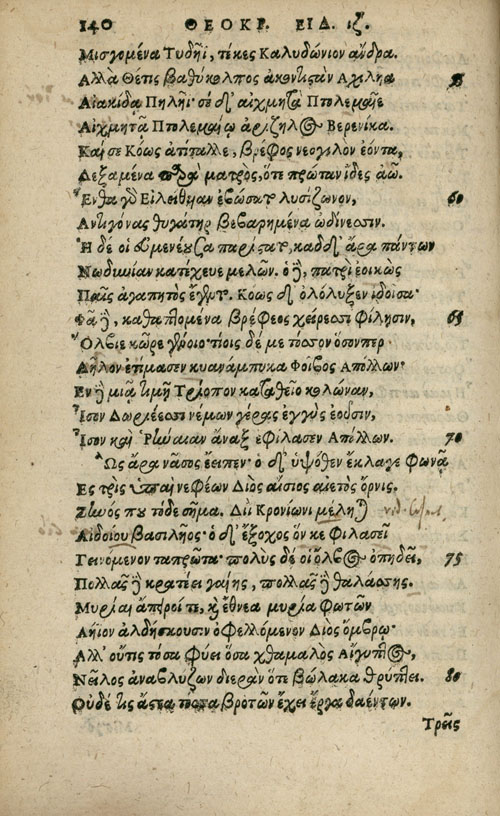 140 ΘΕΟΚΡ. ΕΙΔ. ιζ.
Μισγομένα Τυδῆϊ, τέκες Καλυδώνιον ἄνδρα.
Αλλὰ Θέτις βαθύκολπος ἀκοντιστὰν Αχιλῆα 55
Αἰακίδᾳ Πηλῆϊ· σὲ δ' αἰχμητὰ Πτολεμαῖε
Αἰχμητᾷ Πτολεμαίῳ ἀρίζηλος Βερενίκα.
Καί σε Κόως ἀτίταλλε, βρέφος νεογιλὸν ἐόντα,
Δεξαμένα παρὰ ματρὸς, ὅτε πρώταν ἴδες ἀῶ.
Ἔνθα γὰρ Εἰλείθυιαν ἐβώσατο λυσίζωνον, 60
Αντιγόνας θυγάτηρ βεβαρημένα ὠδίνεσσιν.
Ἡ δέ οἱ εὐμενέουσα παρίστατο, καδδ' ἄρα πάντων
Νωδυνίαν κατέχευε μελῶν. ὁ δὲ, πατρὶ ἐοικὼς
Παῖς ἀγαπητὸς ἔγεντο. Κόως δ' ὀλόλυξεν ἰδοῖσα·
Φᾶ δὲ, καθαπτομένα βρέφεος χείρεσσι φίλησιν, 65
Ὄλβιε κῶρε γένοιο· τίοις δέ με τόσσον ὅσον περ
Δῆλον ἐτίμασεν κυανάμπυκα Φοῖβος Απόλλων·
Εν δὲ μιᾷ τιμῇ Τρίοπον καταθεῖο κολώναν,
Ἶσον Δωριέεσσι νέμων γέρας ἐγγὺς ἐοῦσιν,
Ἶσον καὶ Ρήναιαν ἄναξ ἐφίλασεν Απόλλων. 70
Ὣς ἄρα νᾶσος ἔειπεν· ὁ δ' ὑψόθεν ἔκλαγε φωνᾷ
Ες τρὶς ὑπαὶ νεφέων Διὸς αἴσιος αἰετὸς ὄρνις.
Ζηνός που τόδε σῆμα. Διῒ Κρονίωνι μέλησι
Αἰδοίου βασιλῆος· ὁ δ' ἔξοχος ὅν κε φιλασεῖ
Γεινόμενον ταπρῶτα· πολὺς δέ οἱ ὄλβος ὀπηδεῖ, 75
Πολλᾶς δὲ κρατέει γαίης, πολλᾶς δὲ θαλάσσης.
Μυρίαι ἄπειροί τε, καὶ ἔθνεα μυρία φωτῶν
Λήϊον ἀλδήσκουσιν ὀφελλόμενον Διὸς ὄμβρῳ·
Αλλ' οὔτις τόσα φύει ὅσα χθαμαλὸς Αἴγυπτος,
Νεῖλος ἀναβλύζων διερὰν ὅτε βώλακα θρύπτει. 80
Οὐδέ τις ἄστεα τόσσα βροτῶν ἔχει ἔργα δαέντων.
Τρεῖς